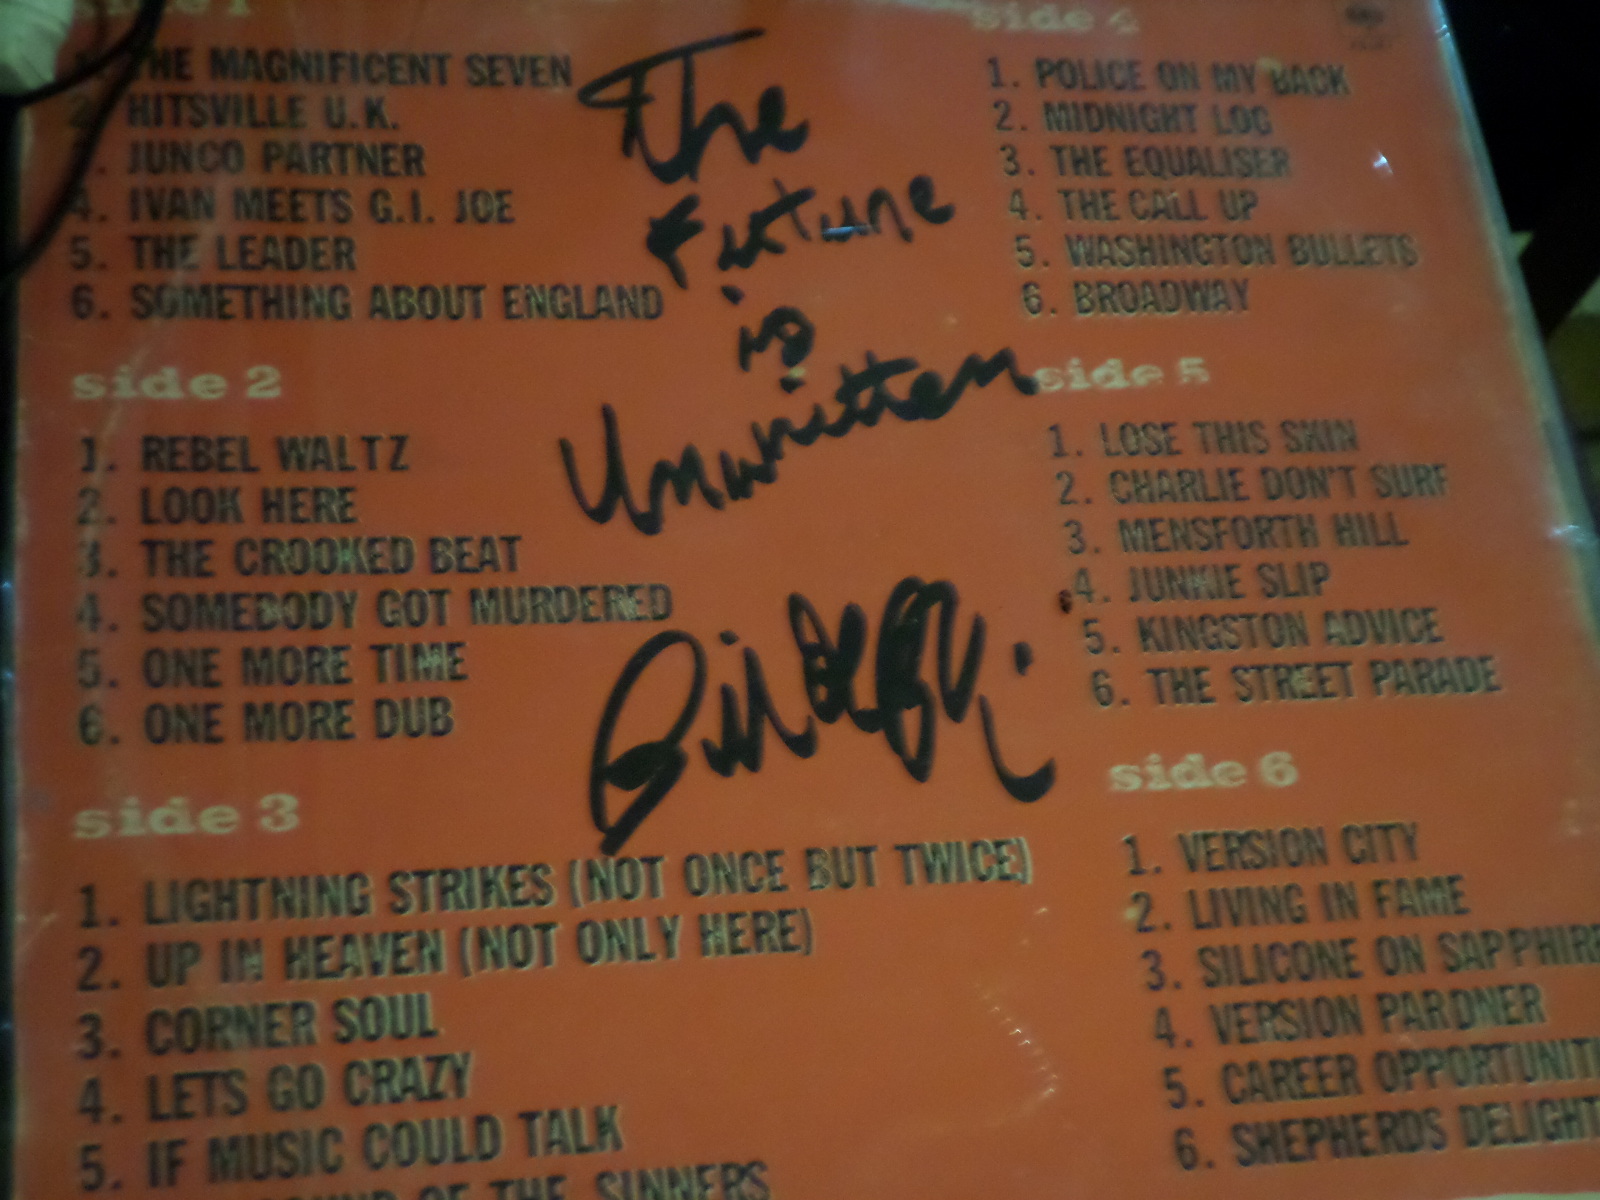 side 1
1. THE MAGNIFICENT SEVEN
2. HITSVILLE U.K.
3. JUNCO PARTNER
4. IVAN MEETS G.I. JOE
5. THE LEADER
6. SOMETHING ABOUT ENGLAND
side 2
1. REBEL WALTZ
2. LOOK HERE
3. THE CROOKED BEAT
4. SOMEBODY GOT MURDERED
5. ONE MORE TIME
6. ONE MORE DUB
side 3
1. LIGHTNING STRIKES (NOT ONCE BUT TWICE)
2. UP IN HEAVEN (NOT ONLY HERE)
3. CORNER SOUL
4. LETS GO CRAZY
5. IF MUSIC COULD TALK
OF THE SINNERS
The
Future
is
Unwritten
side 4
1. POLICE ON MY BACK
2. MIDNIGHT LOG
3. THE EQUALISER
4. THE CALL UP
5. WASHINGTON BULLETS
6. BROADWAY
side 5
1. LOSE THIS SKIN
2. CHARLIE DON'T SURF
3. MENSFORTH HILL
4. JUNKIE SLIP
5. KINGSTON ADVICE
6. THE STREET PARADE
side 6
1. VERSION CITY
2. LIVING IN FAME
3. SILICONE ON SAPPHIRE
4. VERSION PARDNER
5. CAREER OPPORTUNITI
6. SHEPHERDS DELIGHT